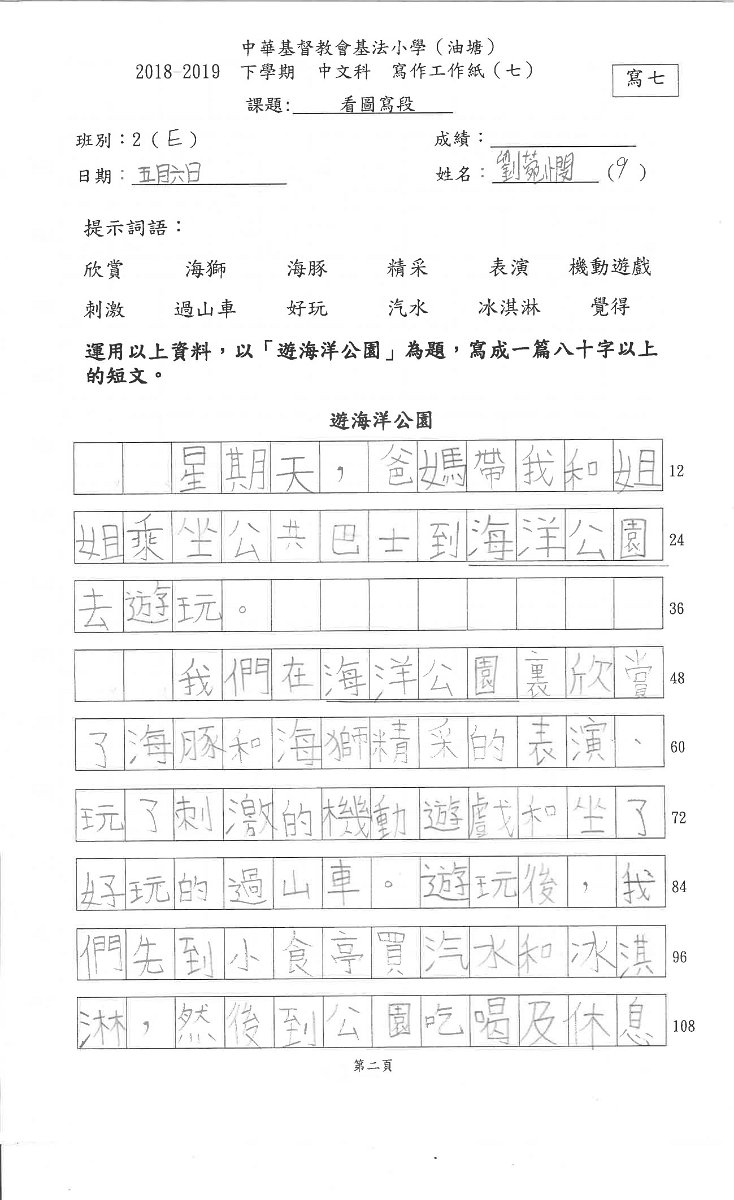 中華基督教會基法小學（油塘）
2018-2019 下學期 中文科 寫作工作紙（七）
寫七
課題: 看圖寫段
班別：2（E） 成績：
日期：五月六日 姓名：劉菀憫（9）
提示詞語：
欣賞 海獅 海豚 精采 表演 機動遊戲
刺激 過山車 好玩 汽水 冰淇淋 覺得
運用以上資料，以「遊海洋公園」為題，寫成一篇八十字以上
的短文。
遊海洋公園
星期天，爸媽帶我和姐 12
姐乘坐公共巴士到海洋公園 24
去遊玩。 36
我們在海洋公園裏欣賞 48
了海豚和海獅精采的表演、 60
玩了刺激的機動遊戲和坐了 72
好玩的過山車。遊玩後，我 84
們先到小食亭買汽水和冰淇 96
淋，然後到公園吃喝及休息 108
第二頁